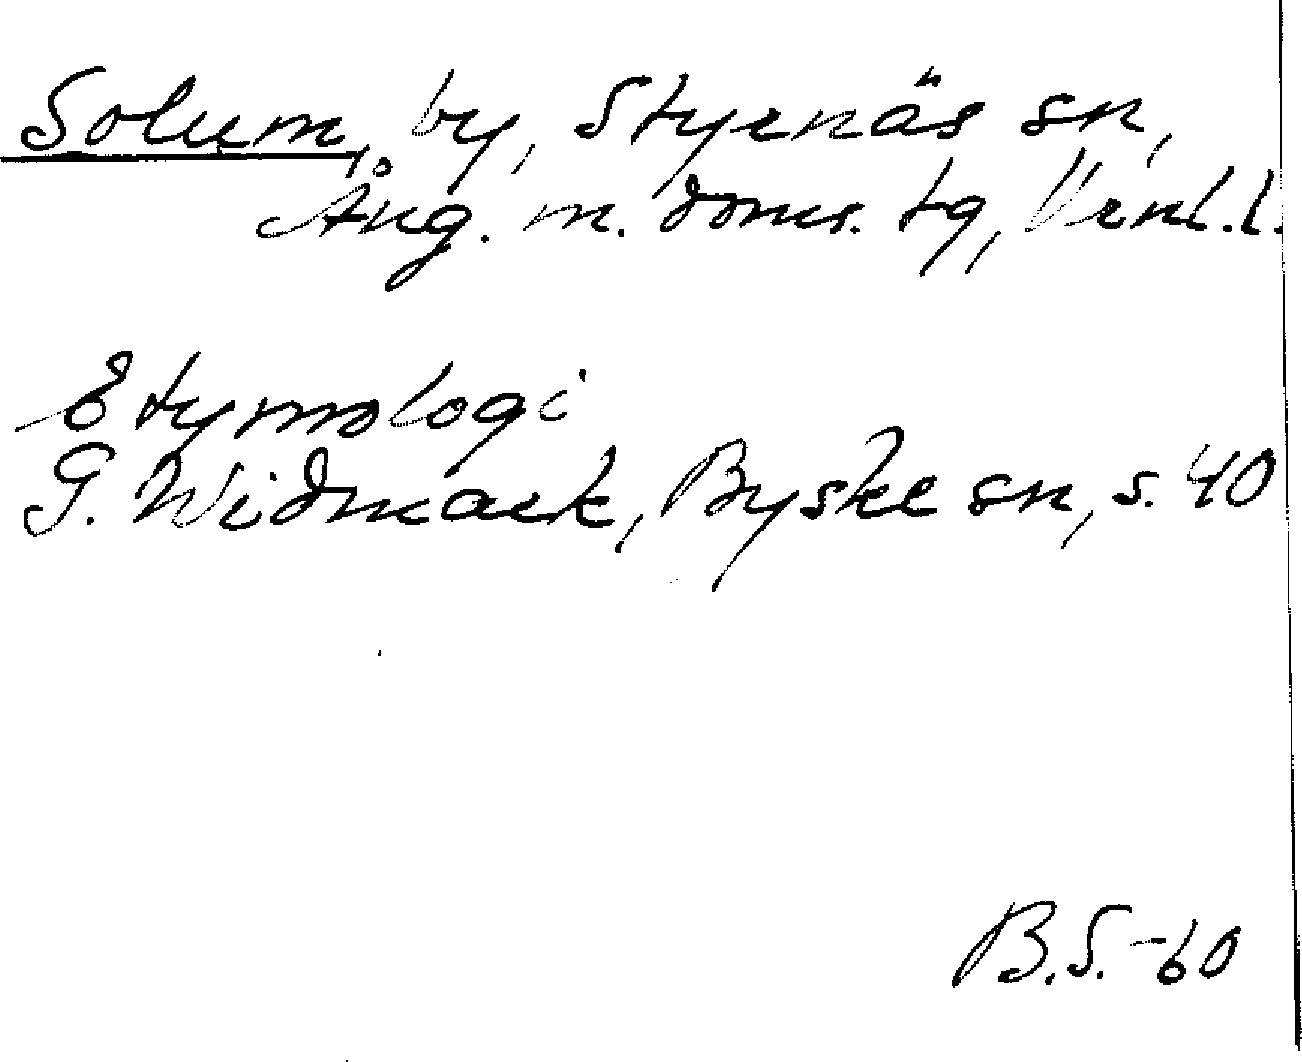 Solum, by, Styrnäs sn,
Ång. m. doms. tg, Vrnl. l.
Etymologi
G. Widmark, Byske sn, s. 40
B.S. -60